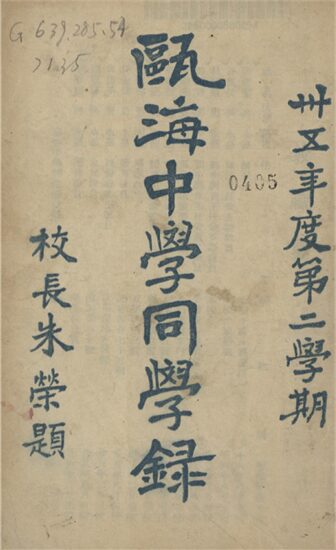 卅五年度第二學期
甌海中學同學録
校長朱榮題
0405
G 639.285.54